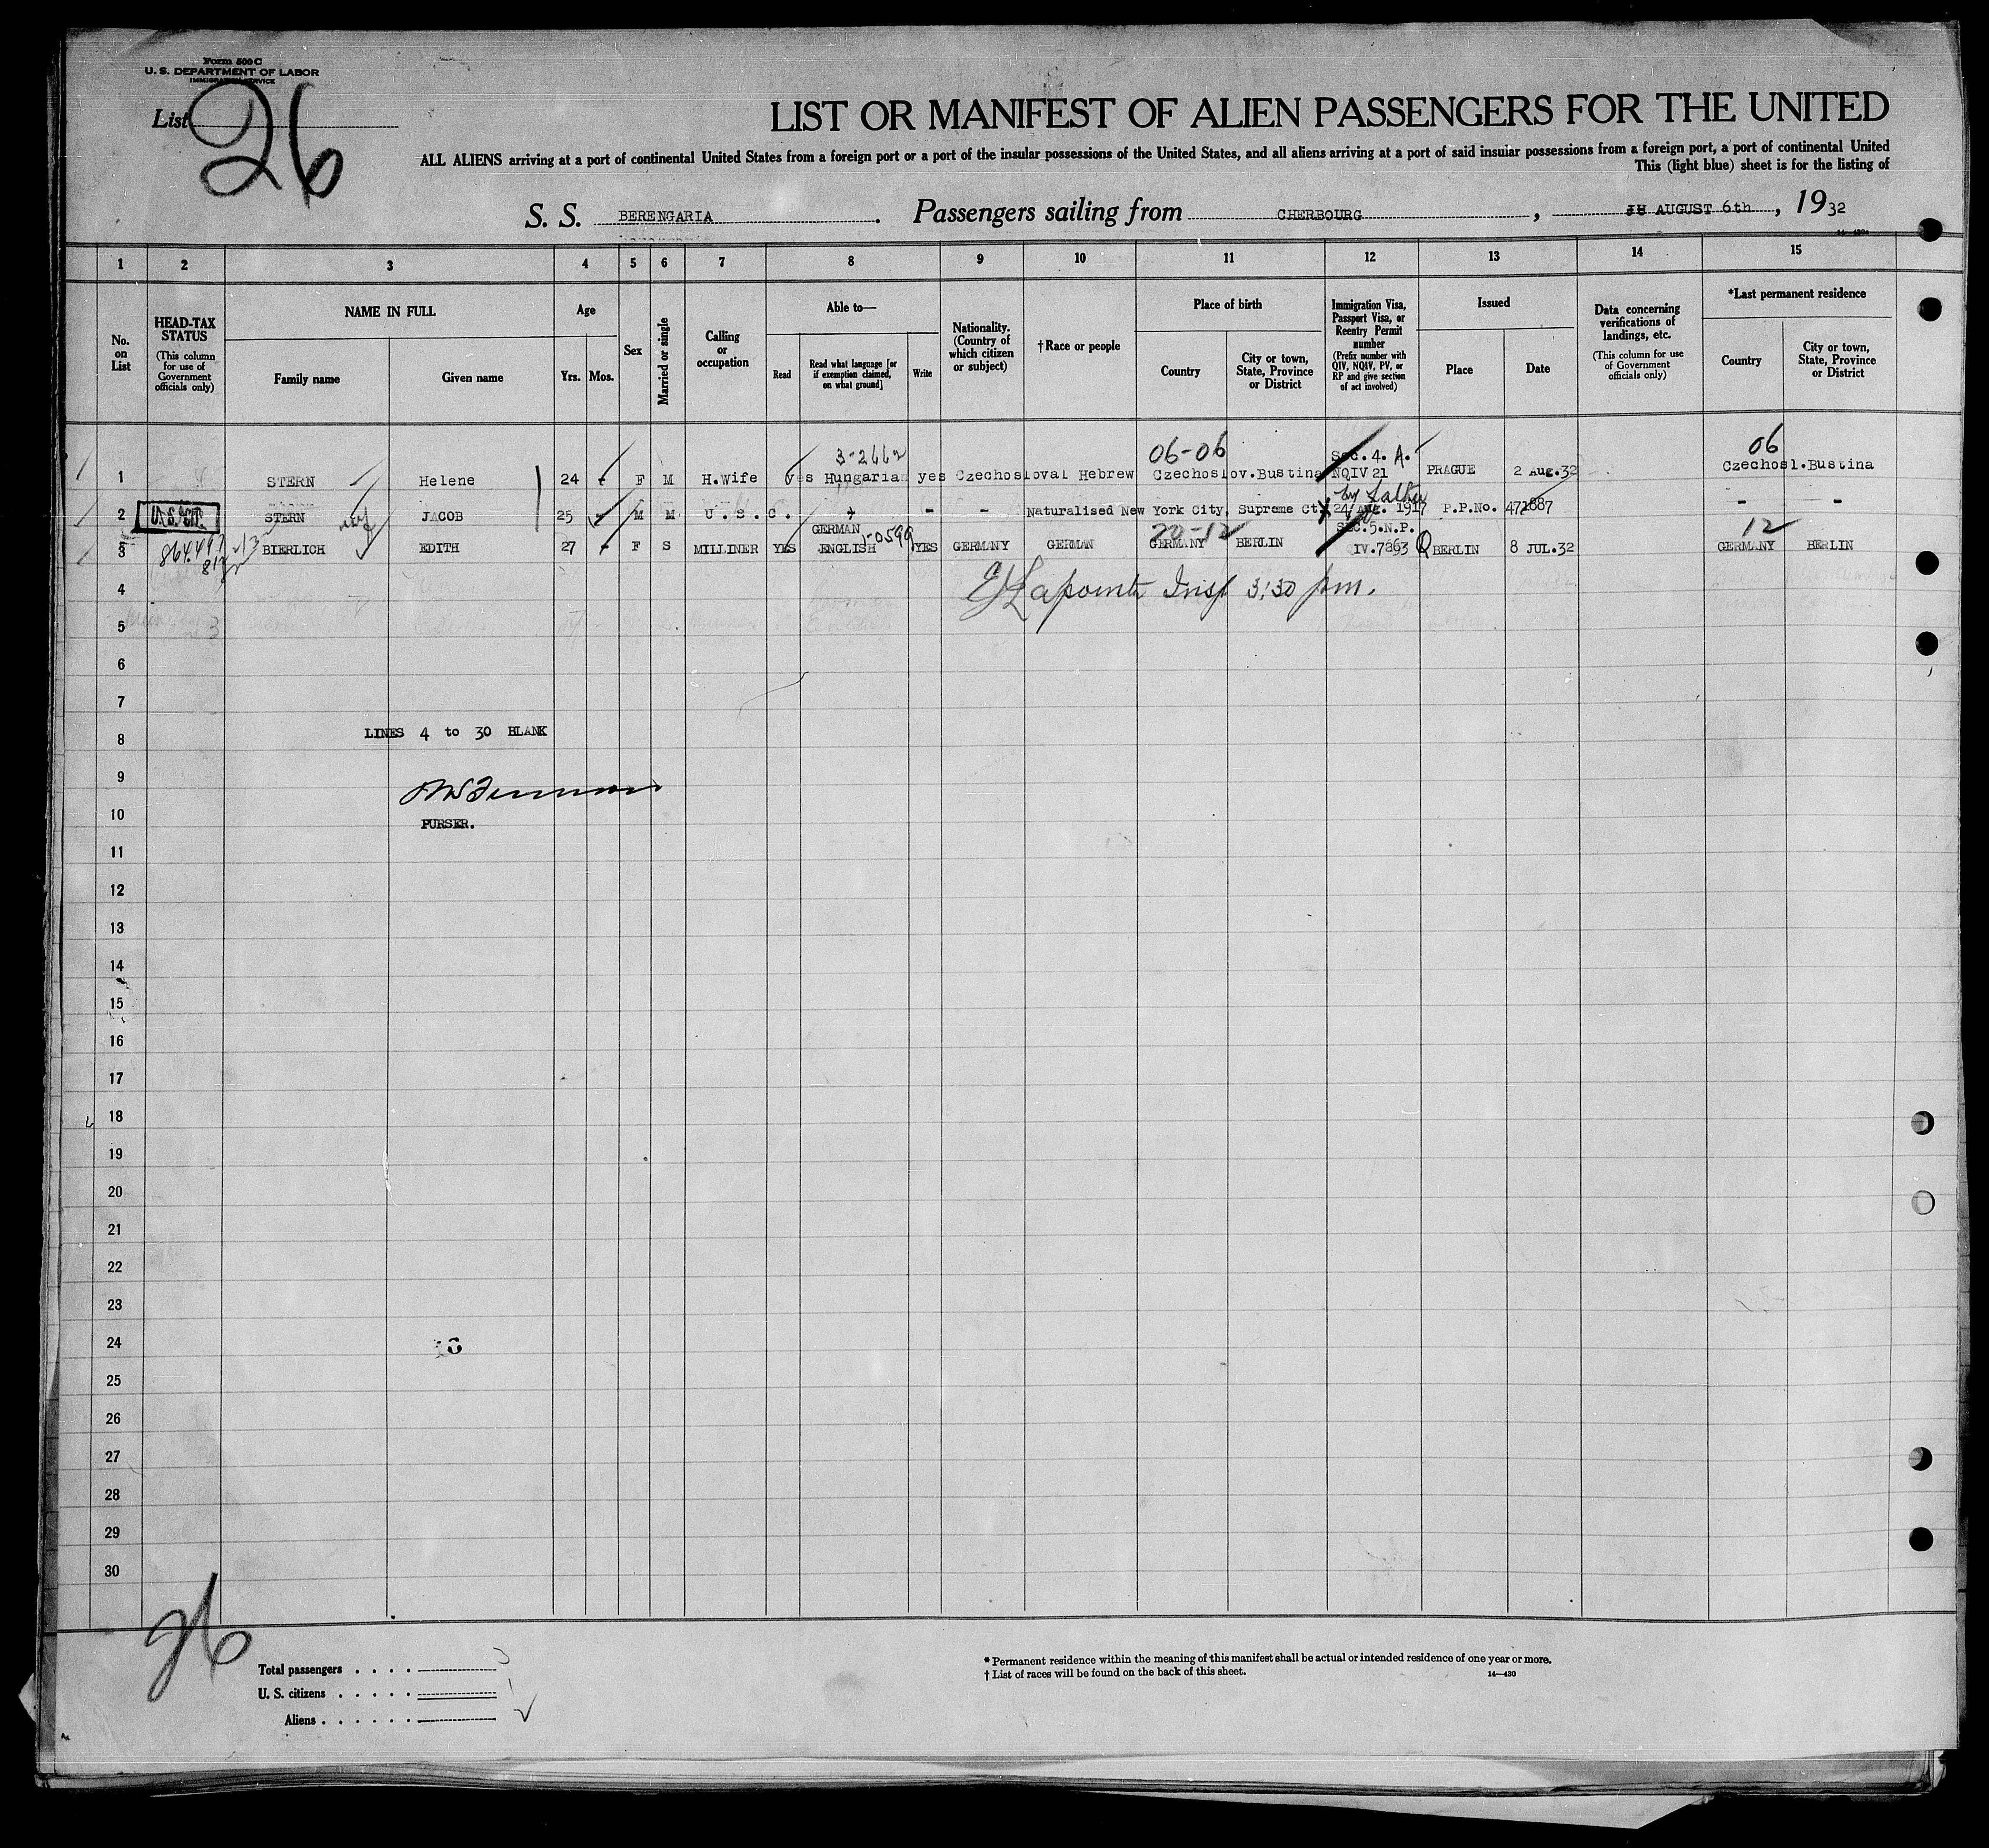 Form 500 C
U. S. DEPARTMENT OF LABOR
IMMIGRATION SERVICE
List 26
LIST OR MANIFEST OF ALIEN PASSENGERS FOR THE UNITED
ALL ALIENS arriving at a port of continental United States from a foreign port or a port of the insular possessions of the United States, and all aliens arriving at a port of said insular possessions from a foreign port, a port of continental United
This (light blue) sheet is for the listing of
S. S. BERENGARIA. Passengers sailing from CHERBOURG, AUGUST 6th, 1932
1 2 3 4 5 6 7 8 9 10 11 12 13 14 15
No. on List
HEAD-TAX STATUS
(This column for use of Government officials only)
NAME IN FULL
Family name
Given name
Age
Yrs. Mos.
Sex
Married or single
Calling or occupation
Able to—
Read
Read what language [or if exemption claimed, on what ground]
Write
Nationality. (Country of which citizen or subject)
†Race or people
Place of birth
Country
City or town, State, Province or District
Immigration Visa, Passport Visa, or Reentry Permit number
(Prefix number with QIV, NQIV, PV, or RP and give section of act involved)
Issued
Place
Date
Data concerning verifications of landings, etc.
(This column for use of Government officials only)
*Last permanent residence
Country
City or town, State, Province or District
3-2662 06-06 Sec. 4. A. 06
1 STERN Helene 24 - F M H.Wife yes Hungarian yes Czechosloval Hebrew Czechoslov.Bustina NQIV 21 PRAGUE 2 Aug.32 Czechosl.Bustina
by father
2 U.S. CIT. STERN JACOB 25 - M M U.S.C. - - - Naturalised New York City, Supreme Ct. 24 Aug. 1917 P.P.No. 471887 - -
GERMAN 1-0599 20-12 Sec.5.N.P. 12
3 BIERLICH EDITH 27 - F S MILLINER YES ENGLISH YES GERMANY GERMAN GERMANY BERLIN IV.7863 Q BERLIN 8 JUL.32 GERMANY BERLIN
864497
4 Lapointe Insp 3:30 pm.
5
6
7
LINES 4 to 30 BLANK
8
9
10
PURSER.
11
12
13
14
15
16
17
18
19
20
21
22
23
24
25
26
27
28
29
30
26
Total passengers
U. S. citizens
Aliens
* Permanent residence within the meaning of this manifest shall be actual or intended residence of one year or more.
† List of races will be found on the back of this sheet.
14—430